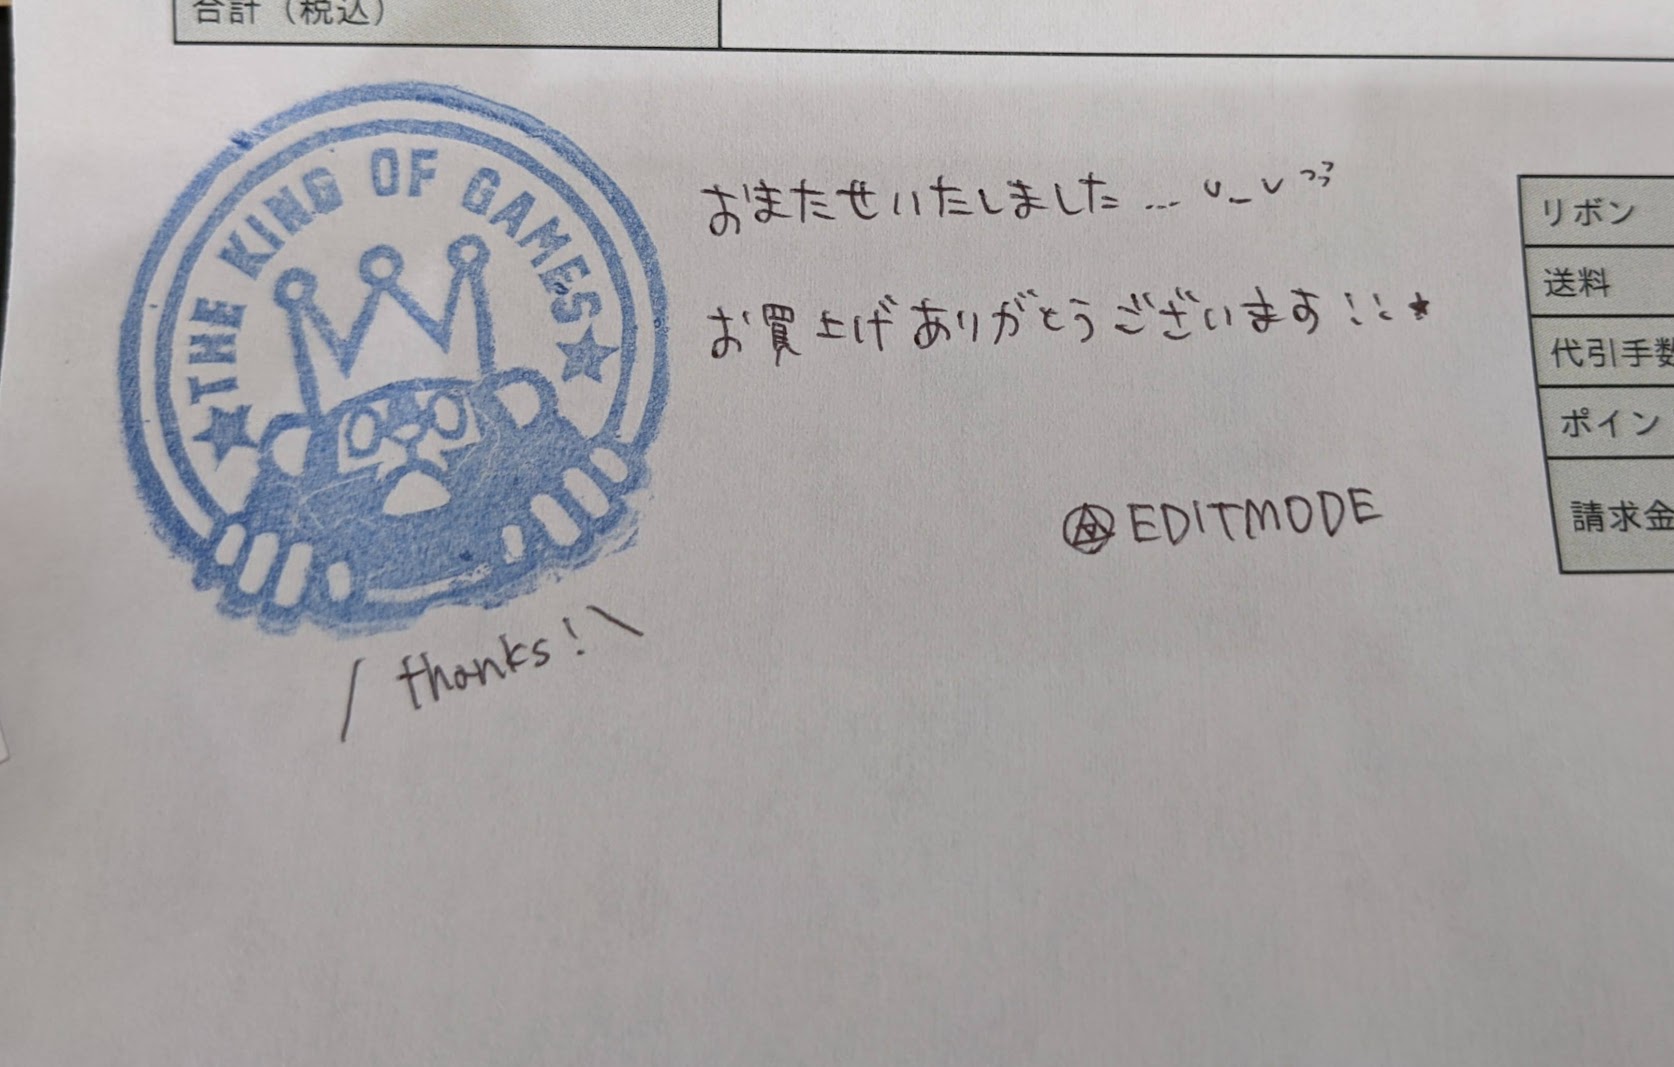 合計（税込）
THE KING OF GAMES
おまたせいたしました... 
お買上げありがとうございます!!★
EDITMODE
thanks!
リボン
送料
代引手数
ポイン
請求金